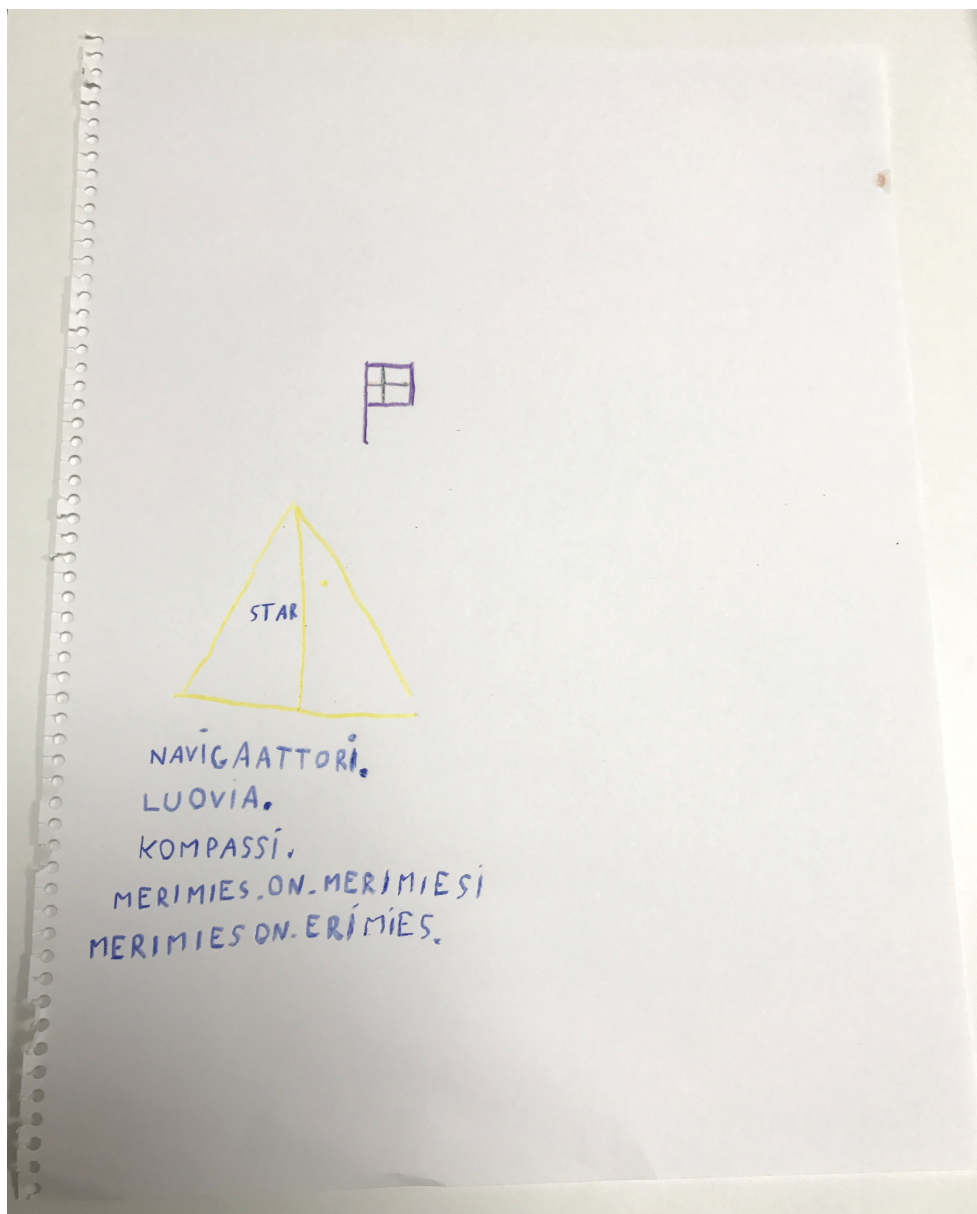 STAR
NAVIGAATTORI.
LUOVIA.
KOMPASSI.
MERIMIES.ON.MERIMIESI
MERIMIES ON.ERIMIES.